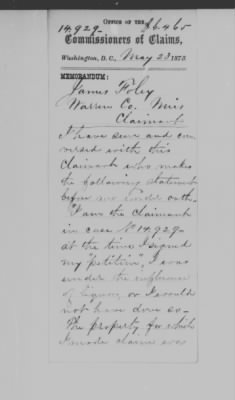 14,929 OFFICE OF THE $6,465
Commissioners of Claims,
Washington, D. C., May 23 1875.
MEMORANDUM:
James Foley
Warren Co. Miss
Claimant
I have seen and con
versed with this
Claimant who makes
the following statement
before me under oath.
"I am the claimant
in case No 14,929-
at the time I signed
my "petition", I was
under the influence
of liquor, or I would
not have done so-
The property for which
I made claim was